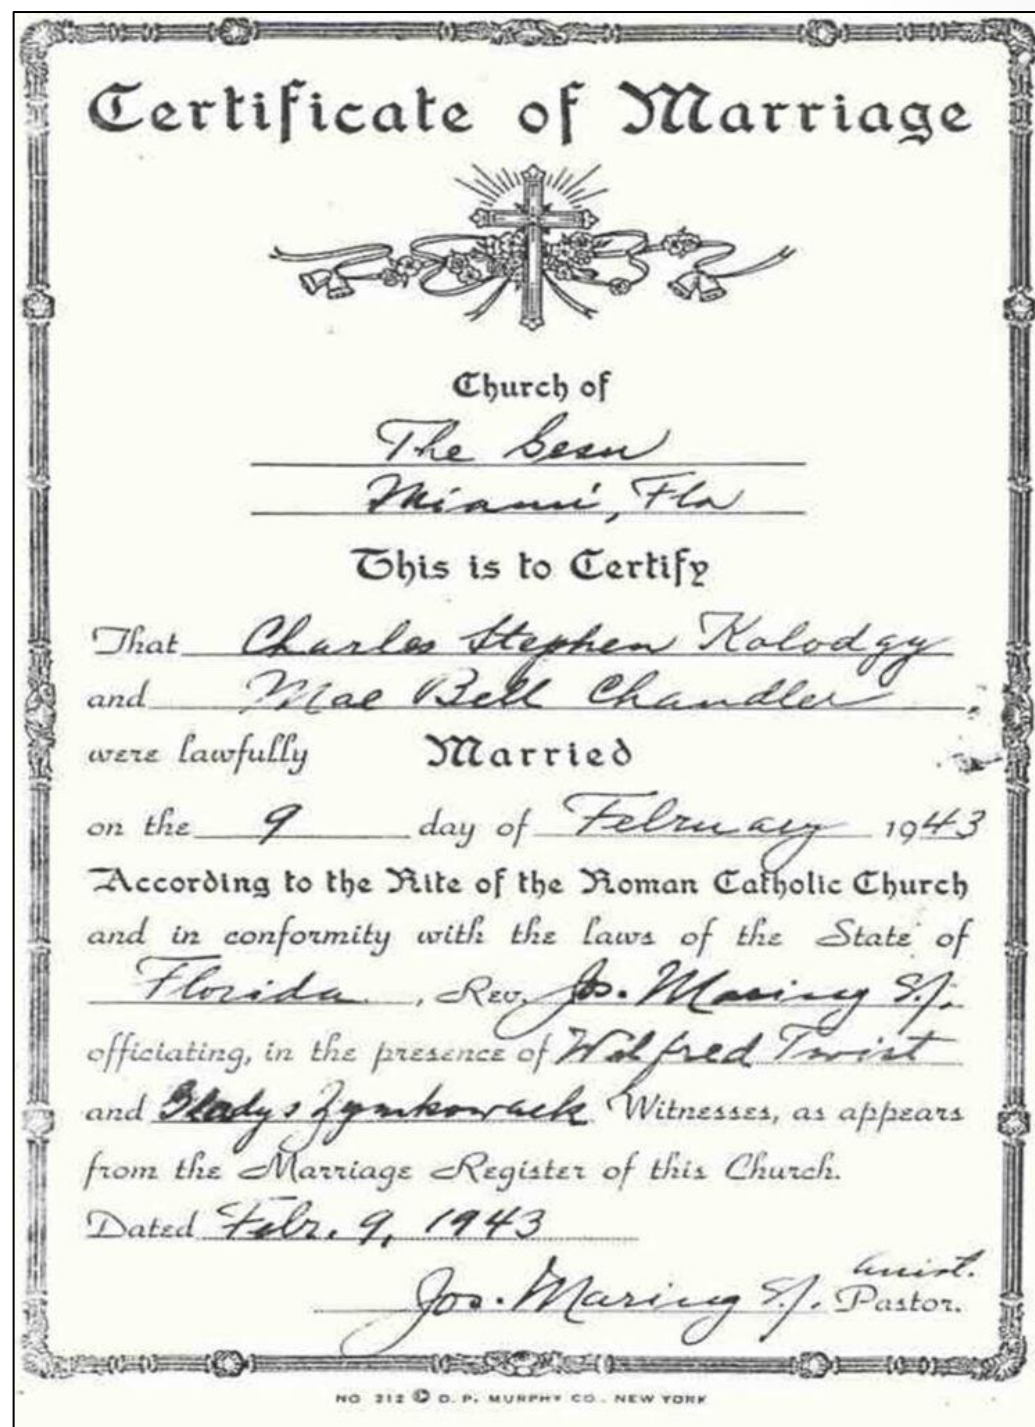 Certificate of Marriage
Church of
The Gesu
Miami, Fla
This is to Certify
That Charles Stephen Kolodgy
and Mae Bell Chandler
were lawfully Married
on the 9 day of February 1943
According to the Rite of the Roman Catholic Church
and in conformity with the laws of the State of
Florida, Rev. Jos. Maring S.J.
officiating, in the presence of Wilfred Twist
and Gladys Zymkowack Witnesses, as appears
from the Marriage Register of this Church.
Dated Febr. 9, 1943
assist.
Jos. Maring S.J. Pastor.
NO 212 © D. P. MURPHY CO., NEW YORK